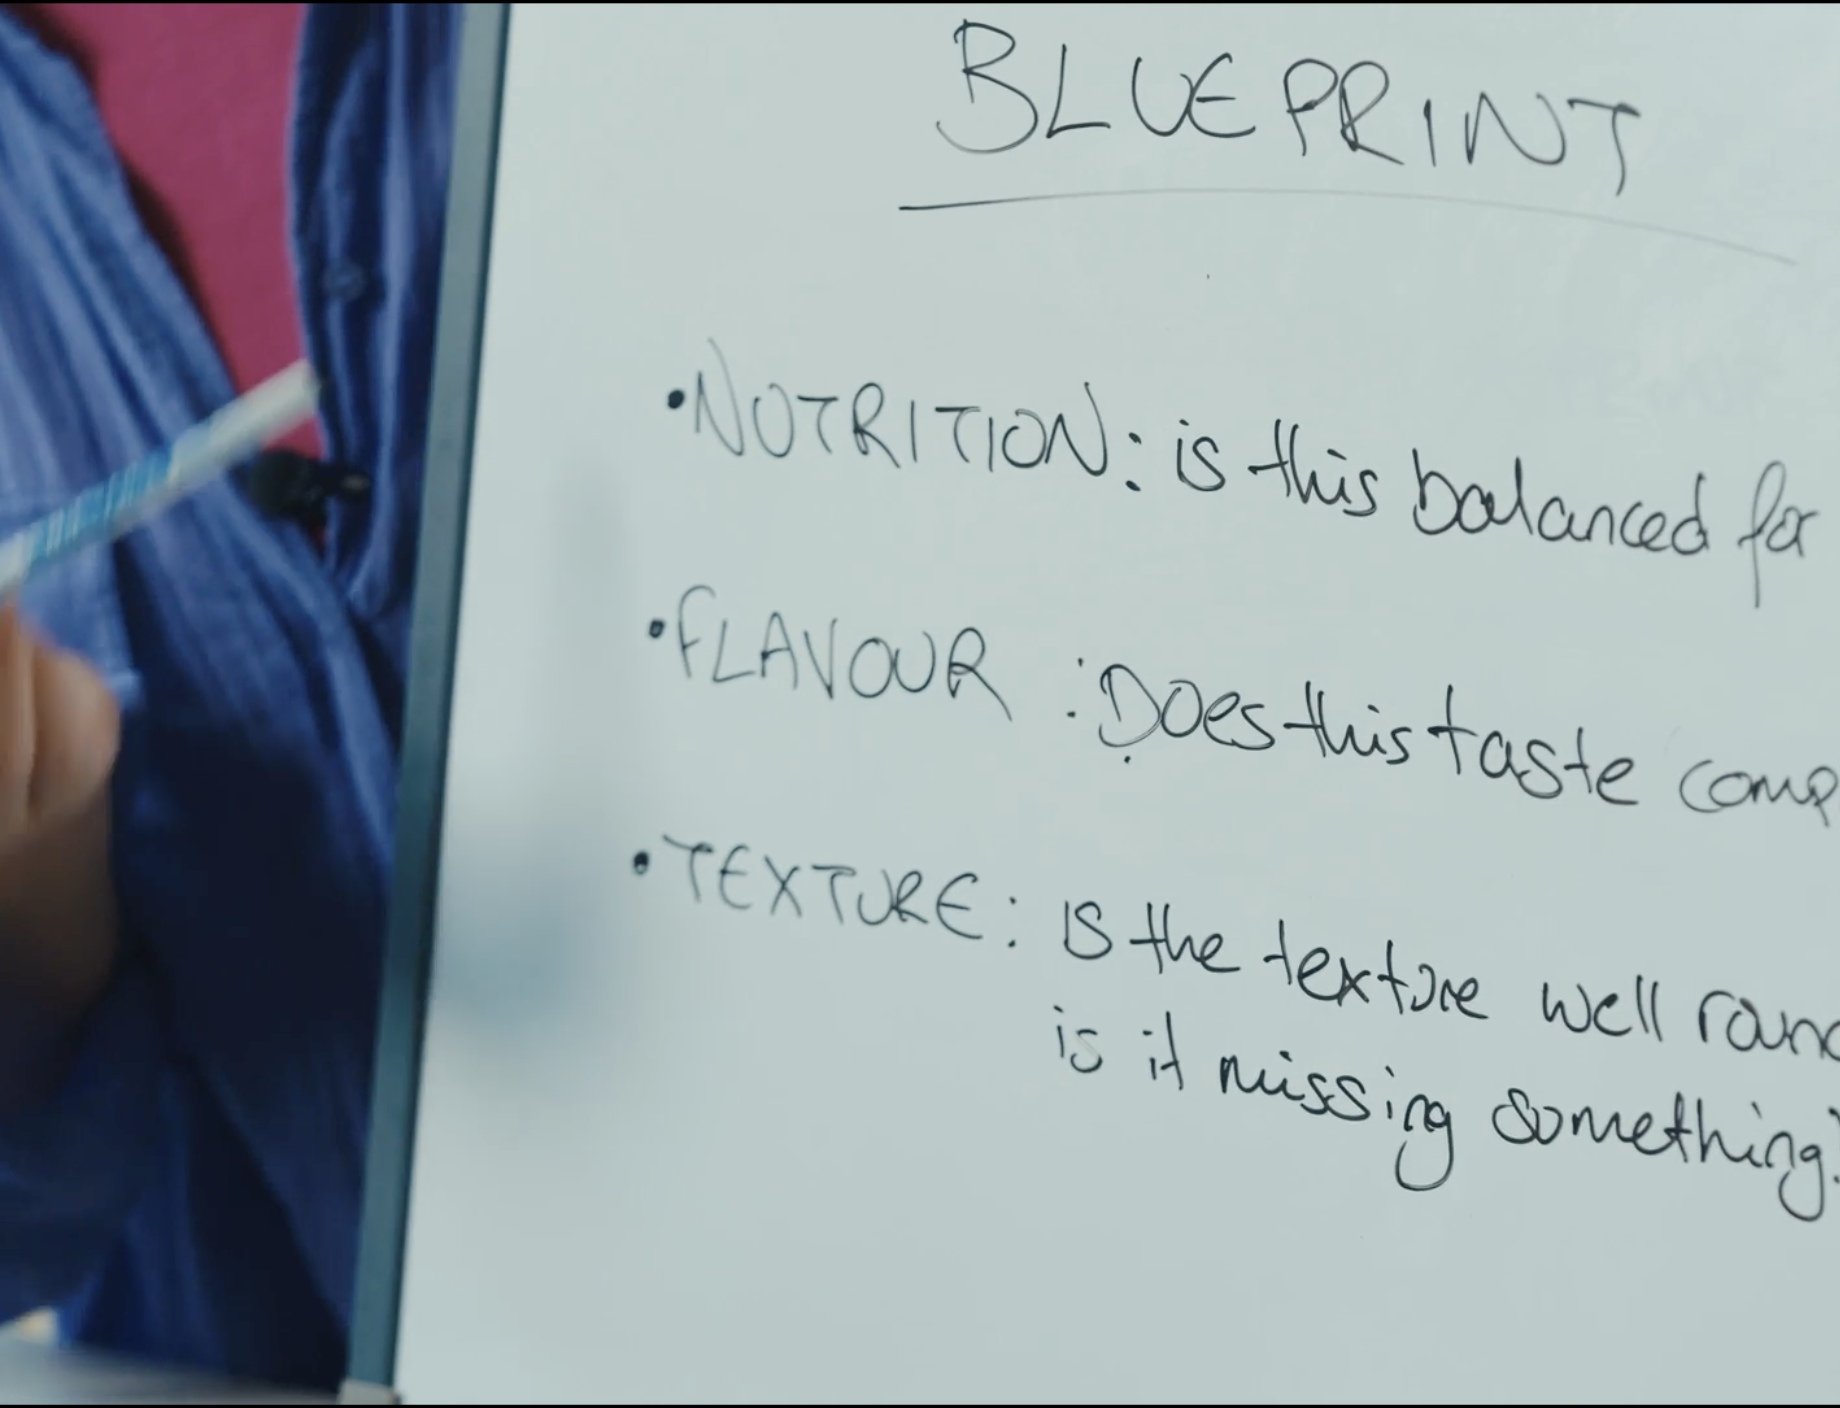 BLUEPRINT
• NUTRITION: is this balanced for
• FLAVOUR : Does this taste comp
• TEXTURE: IS the texture well roun
is it missing something?